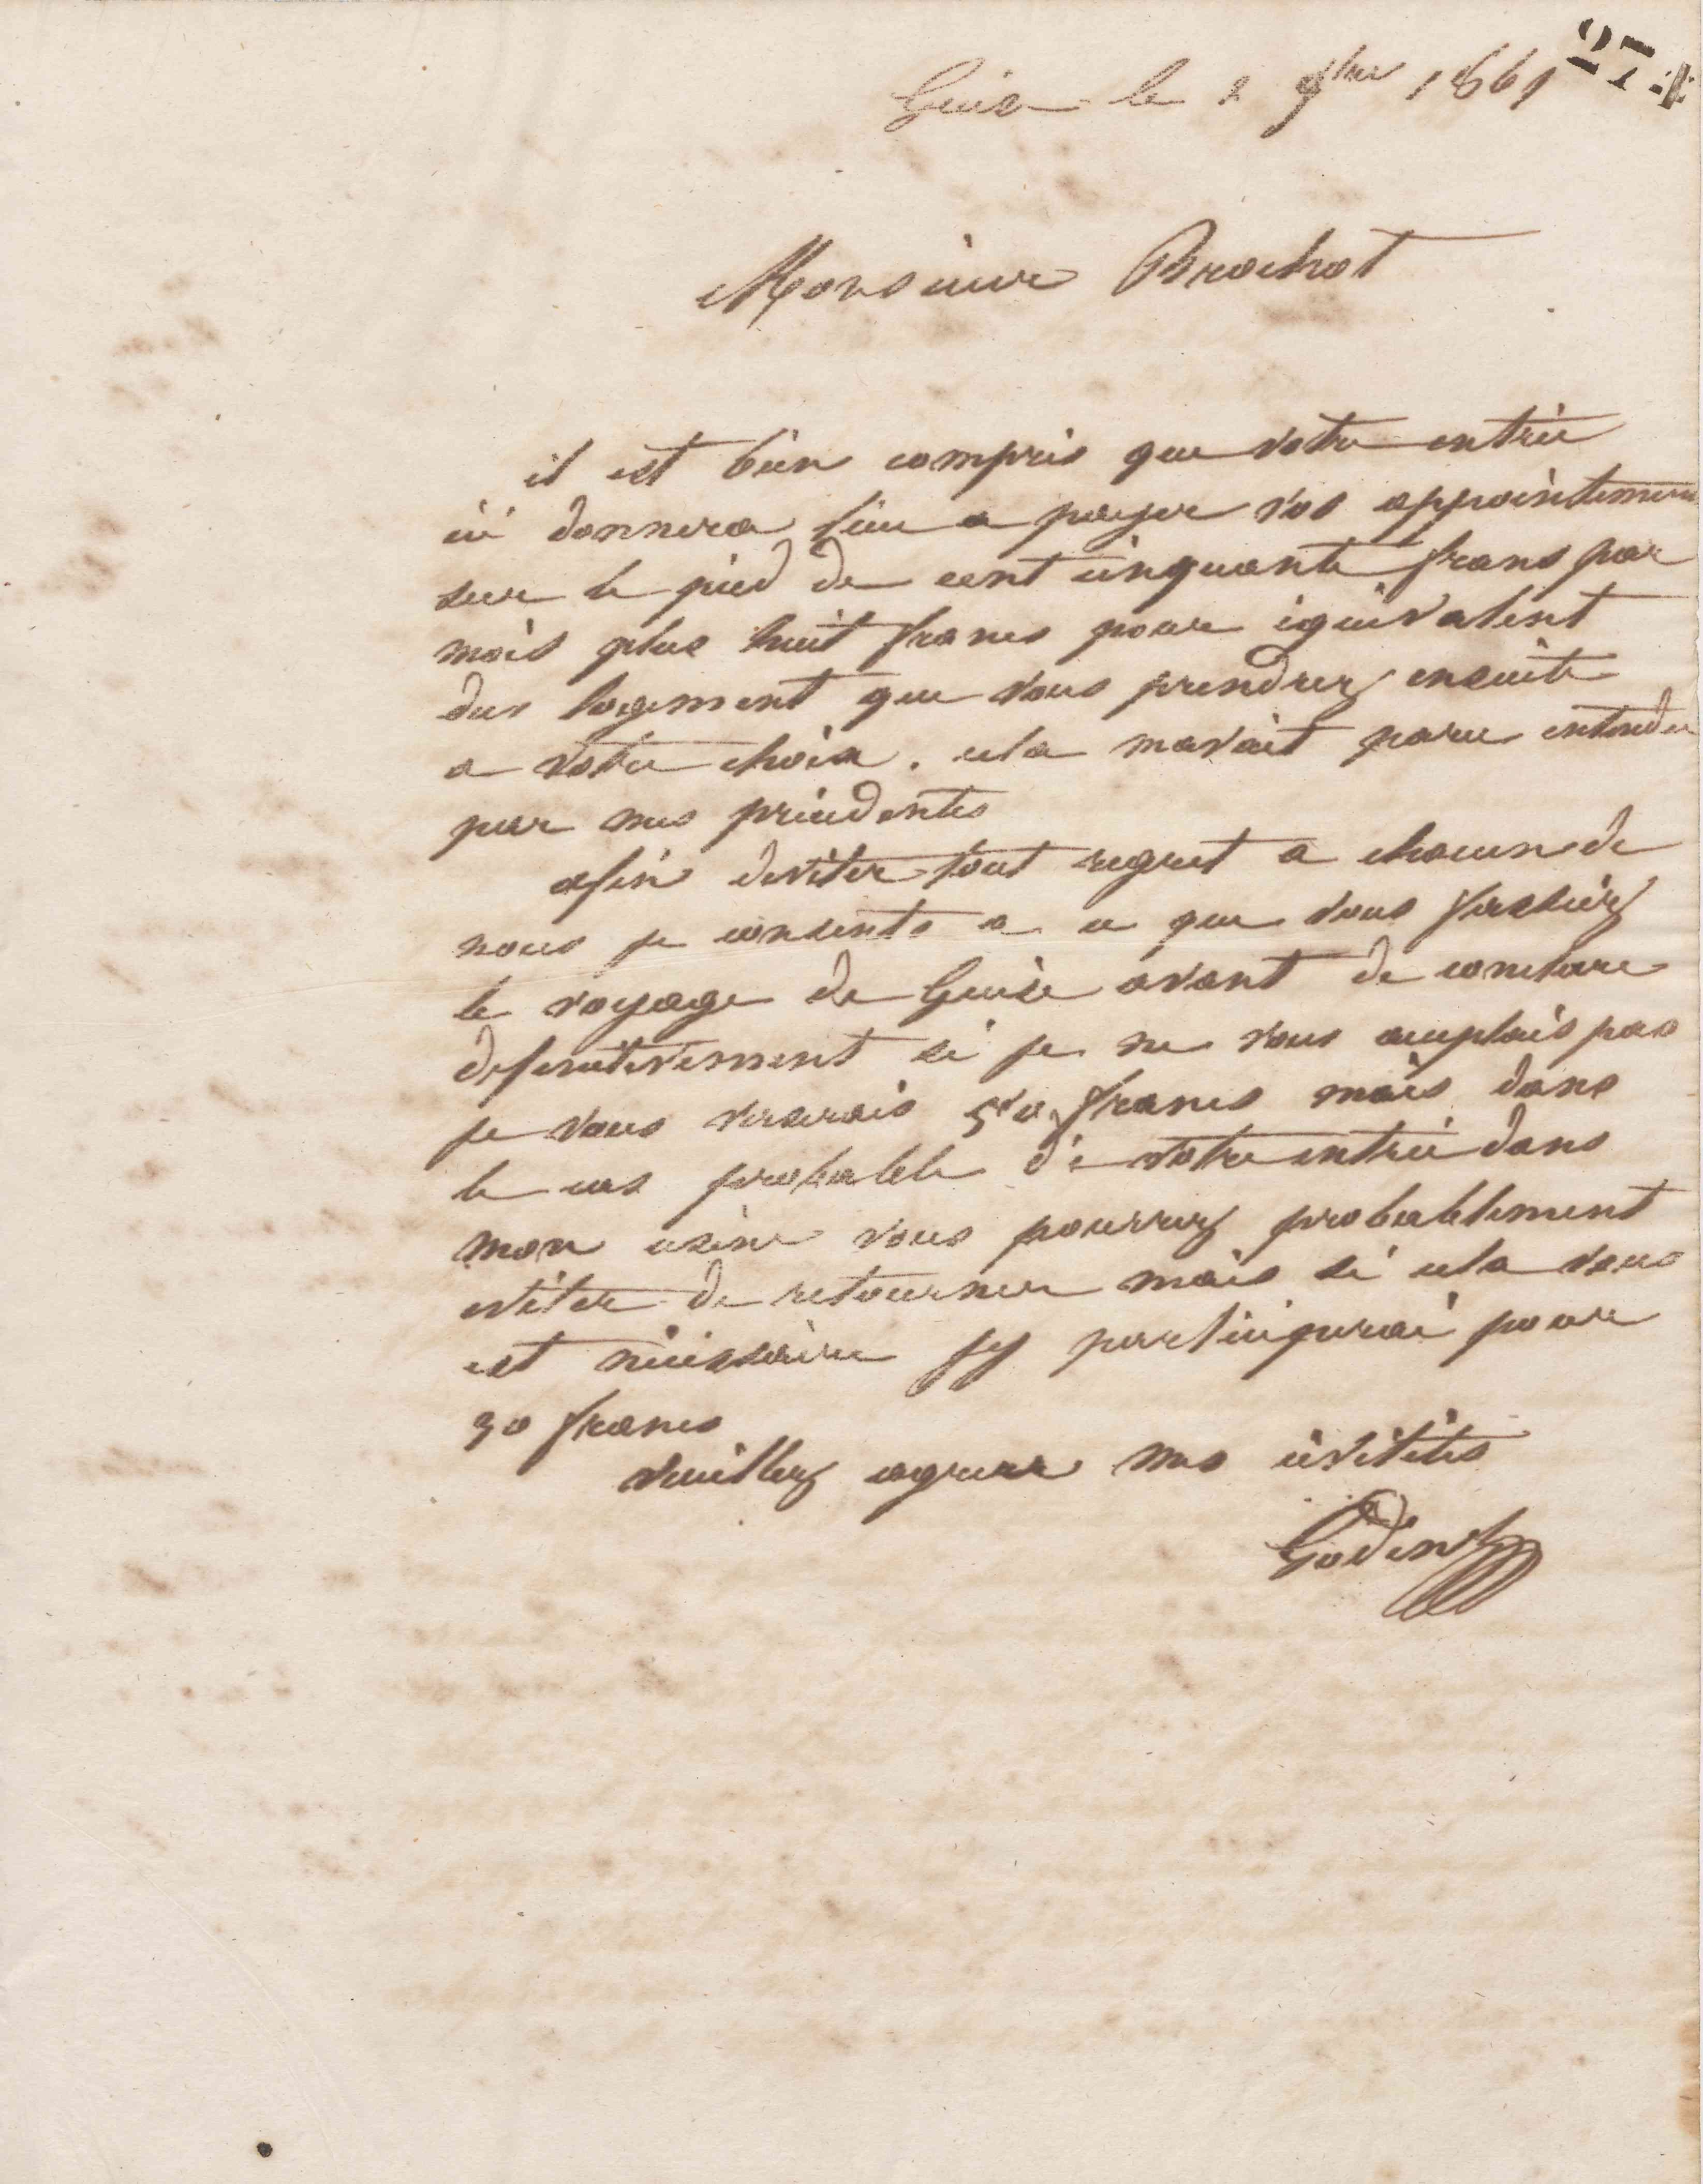 274
Guise le 2 9bre 1861
Monsieur Brochot
il est bien compris que votre entrée
ici donnera lieu a payer vos appointements
sur le pied de cent cinquante frans par
mois plus huit francs pour équivalent
dus logement que vous prendrez ensuite
a votre choix. cela mavait paru entendu
par mes précédentes
afin deviter tout regret a chacun de
nous je consents a ce que vous fassiez
le voyage de Guise avant de conclure
definitivement si je ne vous acceptais pas
je vous verserais 50 francs mais dans
le cas probable de votre entrée dans
mon usine vous pourrez probablement
eviter de retourner mais si cela vous
est nécessaire jy participerai pour
30 francs
veuillez agreer mes civilités
Godin